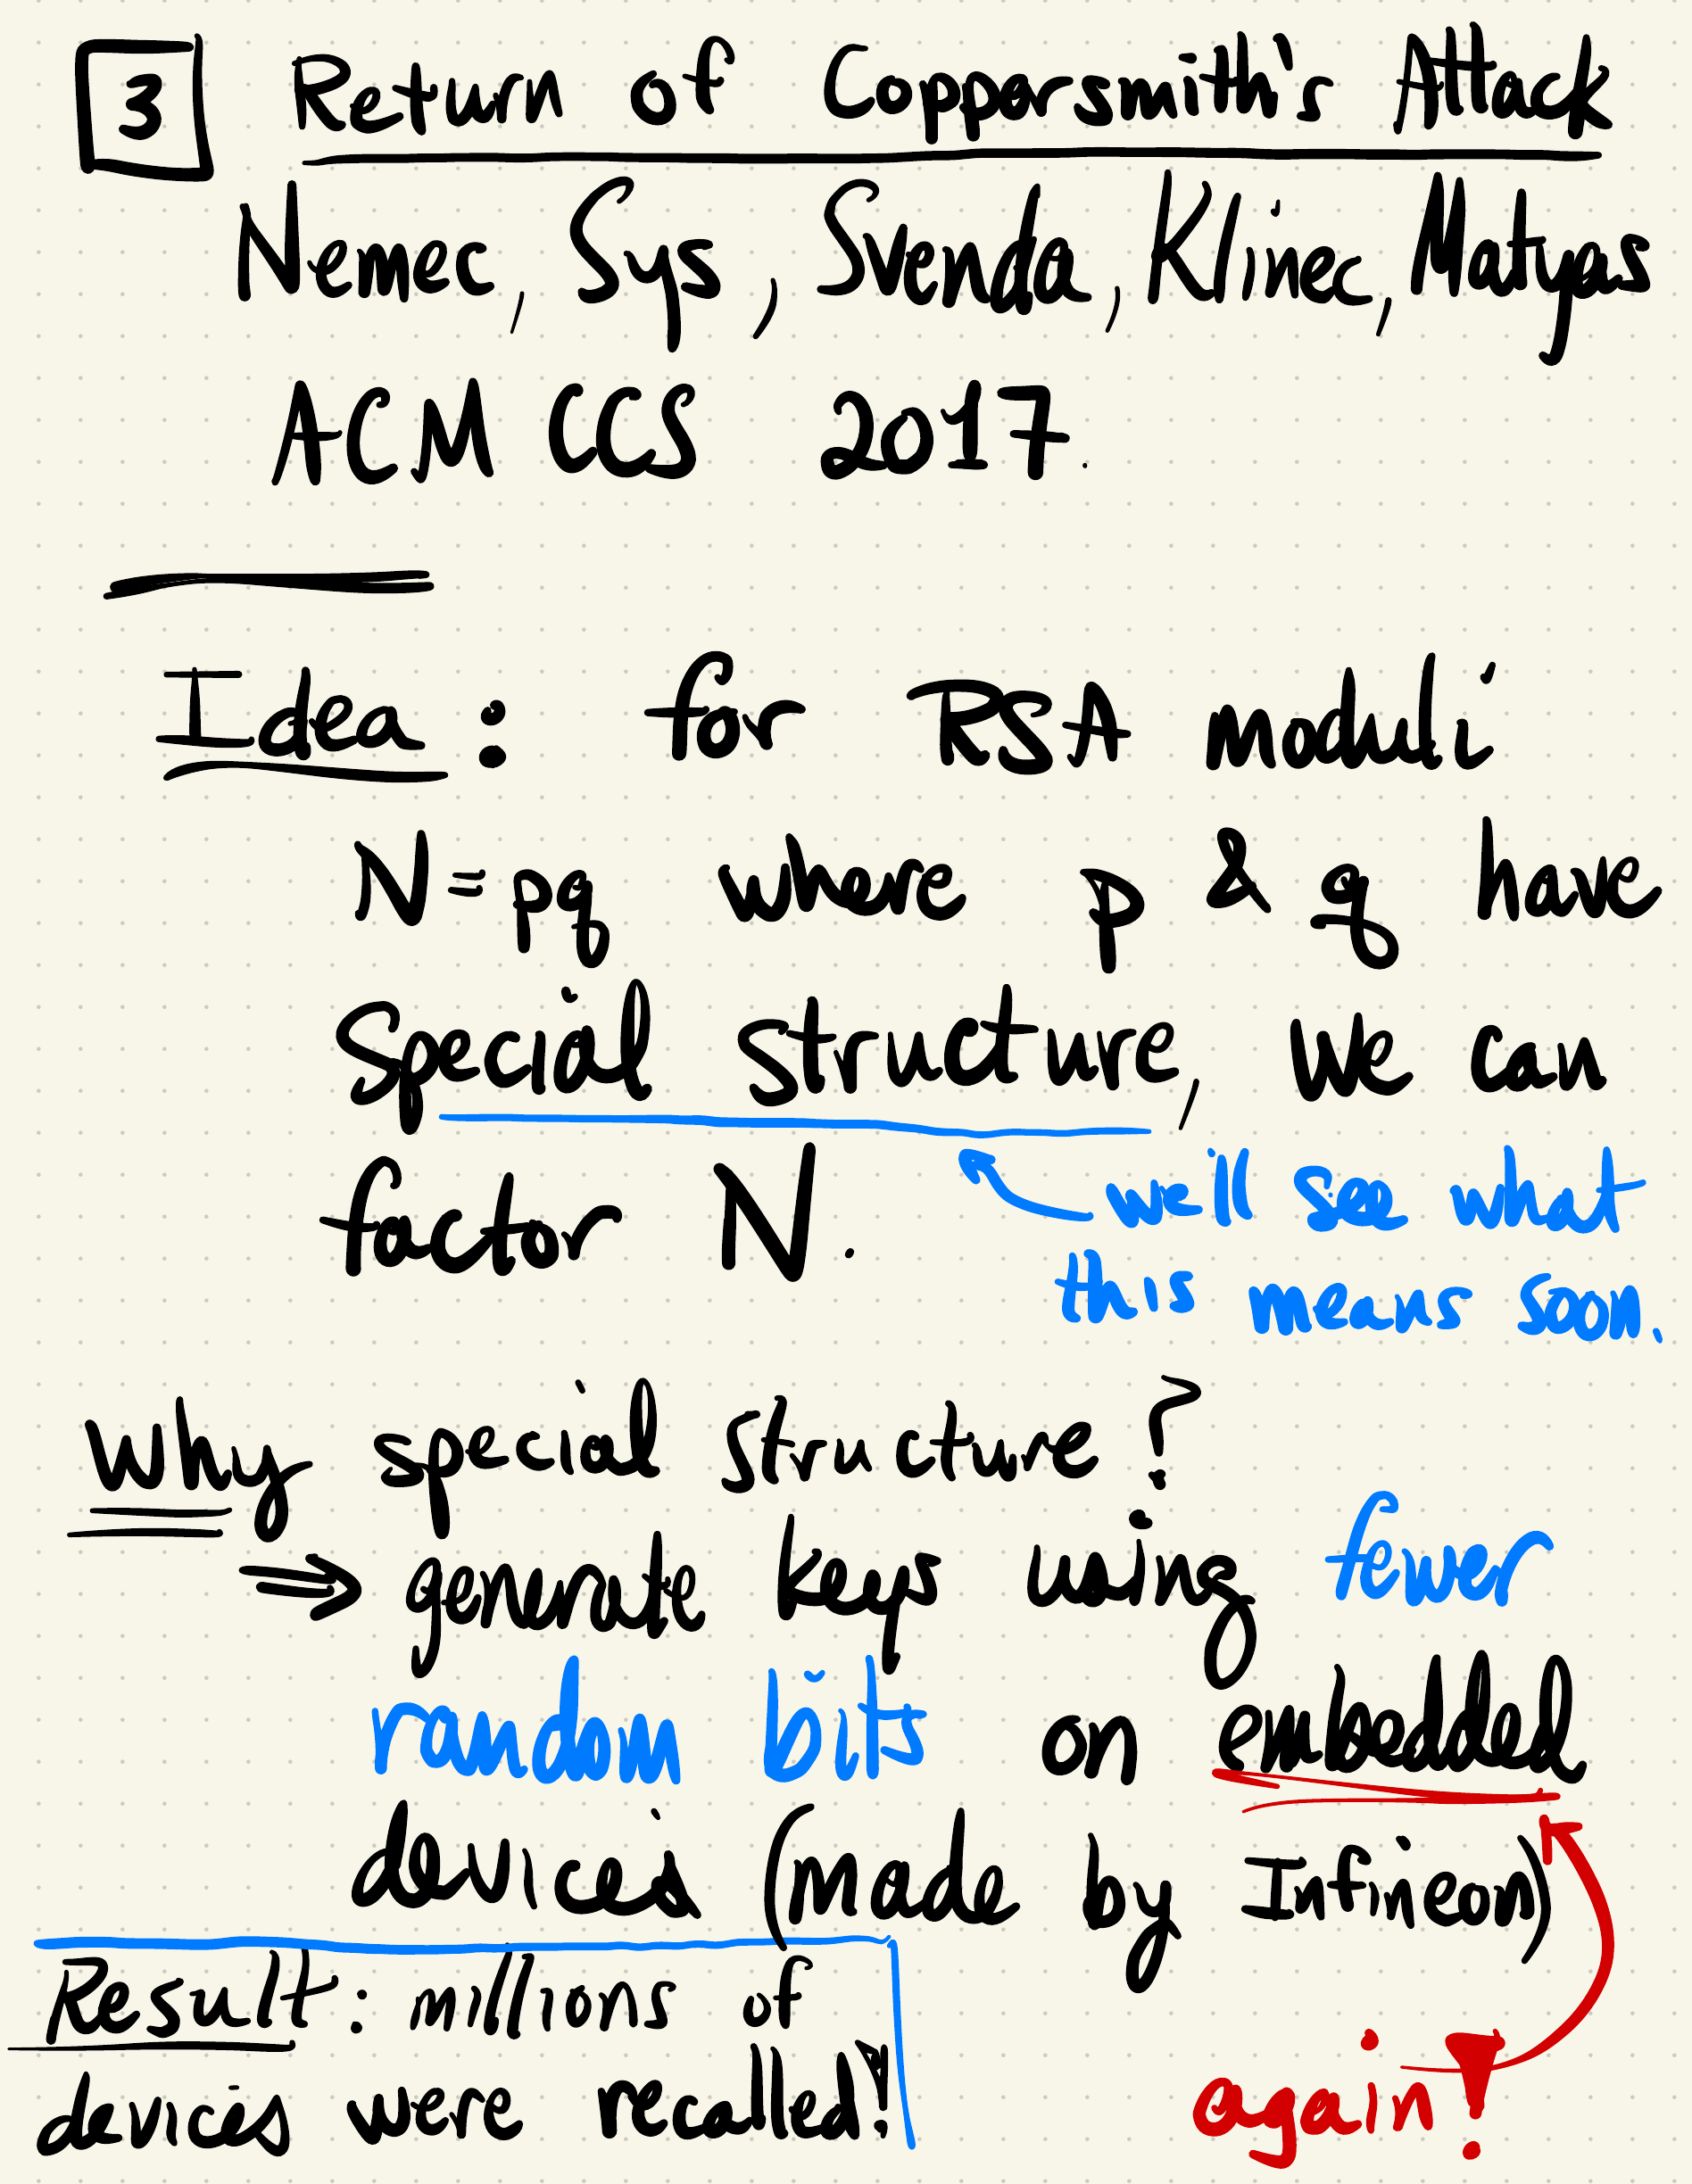 3 Return of Coppersmith's Attack
Nemec, Sys, Svenda, Klinec, Matyas
ACM CCS 2017.
Idea: for RSA moduli
N=pq where p & q have
Special structure, we can
factor N.
we'll see what
this means soon.
Why special structure?
⇒ generate keys using fewer
random bits on embedded
devices (made by Infineon)
Result: millions of
devices were recalled!
again!